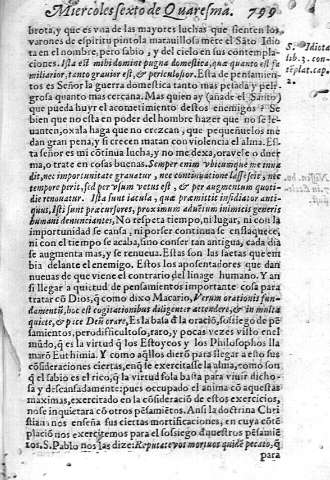 Miercoles sexto de Quaresma. 799
brota, y que es vna de las mayores luchas que sienten los
varones de espiritu pintola marauillosamẽte el Sãto Idio
ta en el nombre, pero sabio, y del cielo en sus contempla-
ciones. Ista est mihi domine pugna domestica, quæ quanto est fa
miliarior, tanto grauior est, & periculosior. Esta de pensamien-
tos es Señor la guerra domestica tanto mas pesada y peli-
grosa quanto mas cercana. Mas quien ay (añade el Santo)
que pueda huyr el acometimiento destos enemigos? Si
bien que no esta en poder del hombre hazer que no se le-
uanten, oxala haga que no crezcan, que pequeñuelos me
dan gran pena, y si crecen matan con violencia el alma. Es-
ta señor es mi cõtinua lucha, y no me dexa, ora vele o duer
ma, o trate en cosas buenas. Semper enim vbicumque me inua
dit, nec importunitate grauatur, nec continuatione lassescit, nec
tempore perit, sed per vsum vetus est, & per augmentum quoti-
die renouatur. Ista sunt iacula, quæ præmittit insidiator anti-
quus, Isti sunt præcursores, proximum aduẽtum inimicis generis
humani denunciantes, No respeta tiempo, ni lugar, ni con la
importunidad se cansa, ni por ser continua se enflaquece,
ni con el tiempo se acaba, sino con ser tan antigua, cada dia
se augmenta mas, y se renueua. Estas son las saetas que em
bia delante el enemigo. Estos los aposentadores que dan
nueuas de que viene el contrario del linage humano. Y an
si llegar a quietud de pensamientos importante cosa para
tratar cõ Dios, q̃ como dixo Macario, Verum orationis fun-
damentũ, hoc est cogitationibus diligenter attendere, & in multa
quiete, & pace Deũ orare, Es la basa d̃ la oraciõ, sossiego de pẽ
samientos, pero dificultoso, raro, y pocas vezes visto en el
mũdo, q̃ es la virtud q̃ los Estoycos y los Philosophos lla
marõ Euthimia. Y como aq̃llos dierõ para llegar a esto sus
cõsideraciones ciertas, en q̃ se exercitasse la alma, como son
q̃ el sabio es el rico, q̃ la virtud sola basta para viuir dicho-
sa y descansadamente: pues ocupado el animo cõ aquestas
maximas, exercitado en la cõsideraciõ de estos exercicios,
no se inquietara cõ otros pẽsamiẽtos. Ansi la doctrina Chri
stiana nos enseña sus ciertas mortificaciones, en cuya cõtẽ
placiõ nos exercitemos para el sossiego d̃ nuestros pẽsamiẽ
tos, S. Pablo nos las dize: Reputate vos mortuos quidẽ pecato, q̃
para
S. Idiota
lib. 3. con
tẽplat. cap.
2.